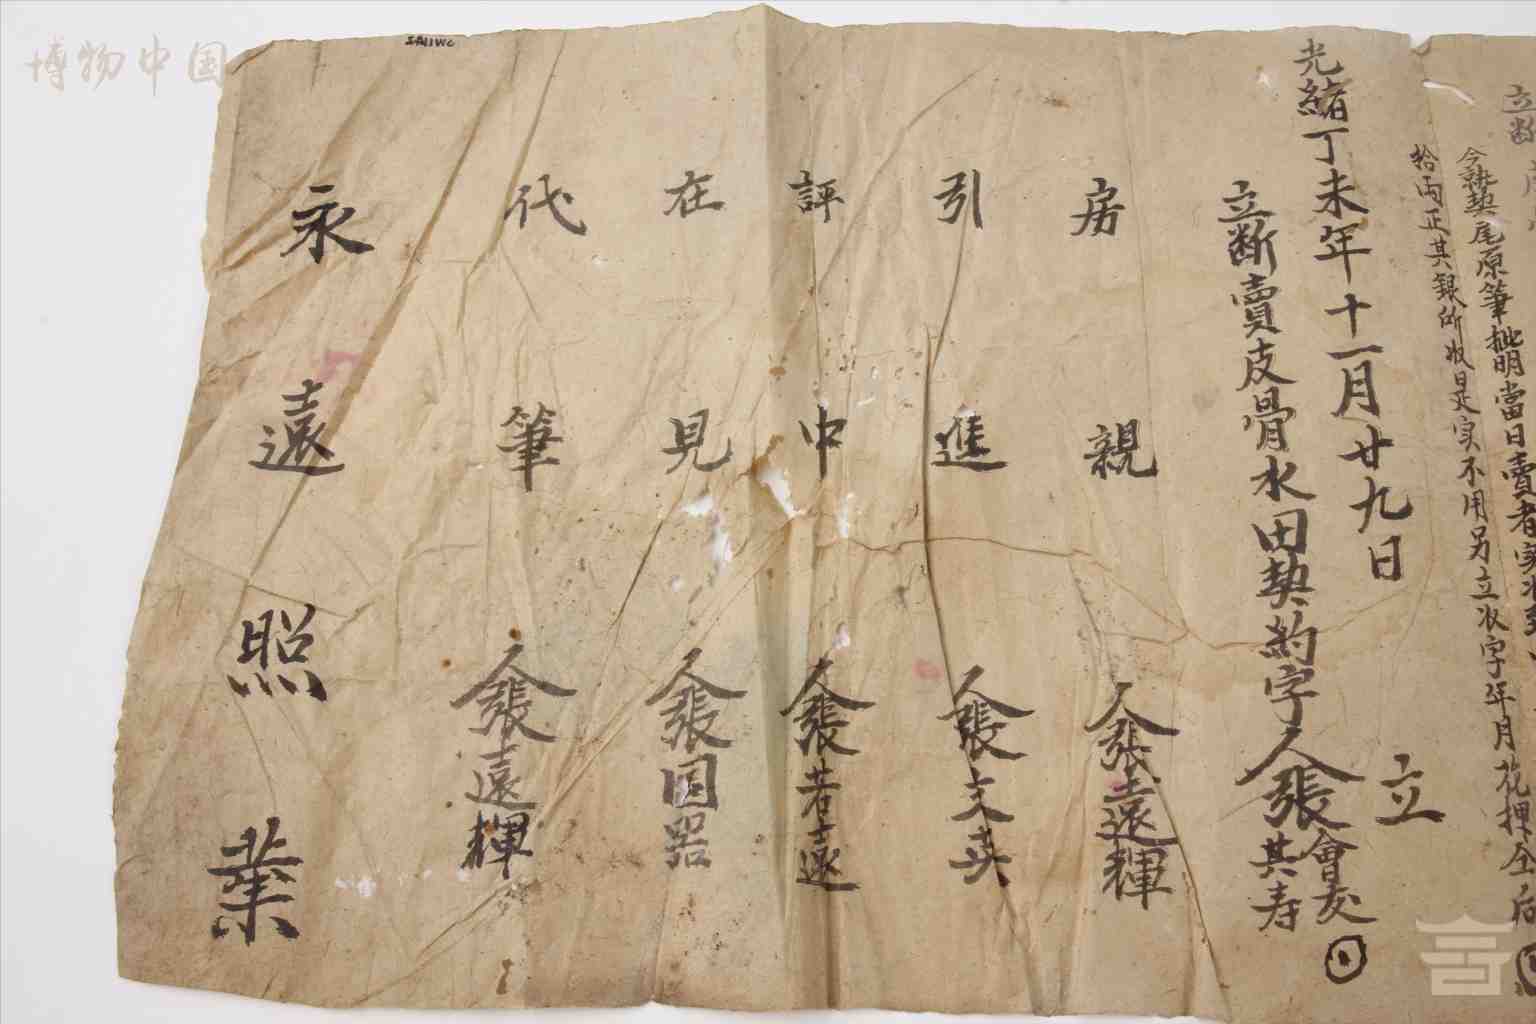 立断
今訣契尾原筆批明當日賣者実
拾両正其銀所收是实不用另立收字年月花押全后
光緒丁未年十一月廿九日 立
立断賣皮骨水田契約字人張會友 其寿
房親人張遠輝
引進人張文英
評中人張若遠
在見人張国器
代筆人張遠輝
永遠照業
博物中国